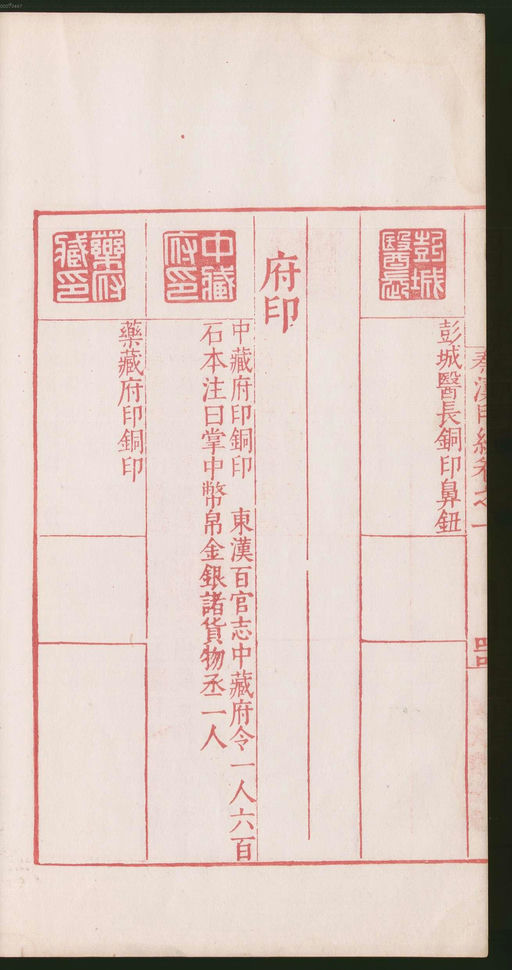 彭城
醫長
彭城醫長銅印鼻鈕
府印
中藏
府印
中藏府印銅印 東漢百官志中藏府令一人六百
石本注曰掌中幣帛金銀諸貨物丞一人
藥府
藏印
藥藏府印銅印